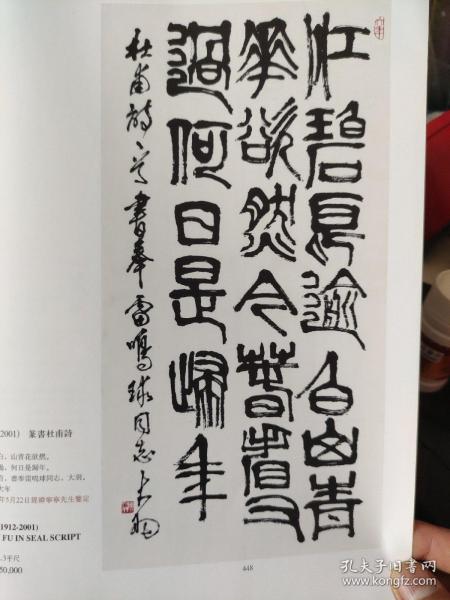 江碧鳥逾白山青
華欲然今春看又
過何日是歸年
杜甫詩一首書奉雷鳴球同志 大羽
2001) 篆書杜甫詩
白，山青花欲燃。
過，何日是歸年。
首，書奉雷鳴球同志。大羽。
大年
年5月22日經韓寧寧先生鑒定
(1912-2001)
FU IN SEAL SCRIPT
.3平尺
50,000
448
孔夫子旧书网